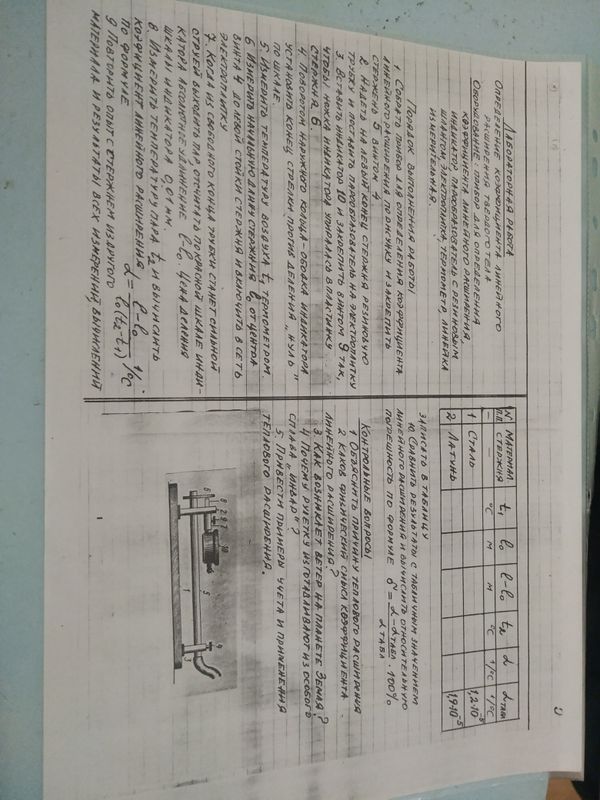 Лабораторная работа
Определение коэффициента линейного
расширения твердого тела
Оборудование: прибор для определения
коэффициента линейного расширения,
индикатор, парообразователь с резиновым
шлангом, электроплитка, термометр, линейка
измерительная.
Порядок выполнения работы
1. Собрать прибор для определения коэффициента
линейного расширения по рисунку и закрепить
стержень 5 винтом 4
2. Надеть на левый конец стержня резиновую
трубку и поставить парообразователь на электроплитку
3. Вставить индикатор 10 и закрепить винтом 9 так,
чтобы ножка индикатора упиралась в пластинку
стержня 6.
4. Поворотом наружного кольца-ободка индикатора
установить конец стрелки против деления „нуль"
по шкале.
5. Измерить температуру воздуха t₁ термометром.
6 Измерить начальную длину стержня l₀ от центра
винта 4 до левой стойки стержня и включить в сеть
электроплитку
7. Когда из свободного конца трубки станет сильной
струей выходить пар отсчитать по красной шкале инди-
катора абсолютное удлинение l-l₀. Цена деления
шкалы индикатора 0,01 мм.
8. Измерить температуру пара t₂ и вычислить
коэффициент линейного расширения
по формуле α = l-l₀ / l₀(t₂-t₁) 1/°C
9 Повторить опыт с стержнем из другого
материала и результаты всех измерений, вычислений
N п.п Материал стержня t₁ l₀ l-l₀ t₂ α α табл
— — °C м м °C 1/°C 1/°C
1 Сталь 1,2·10⁻⁵
2 Латунь 1,9·10⁻⁵
записать в таблицу
10. Сравнить результаты с табличным значением
линейного расширения и вычислить относительную
погрешность по формуле σ = α-α табл / α табл · 100%
Контрольные вопросы
1 Объяснить причину теплового расширения
2 Каков физический смысл коэффициента
линейного расширения?
3. Как возникает ветер на планете Земля?
4 Почему рулетку изготавливают из особого
сплава „инвар"?
5. Привести примеры учета и применения
теплового расширения.
6 8 2 9 7 10 5 1 4 3